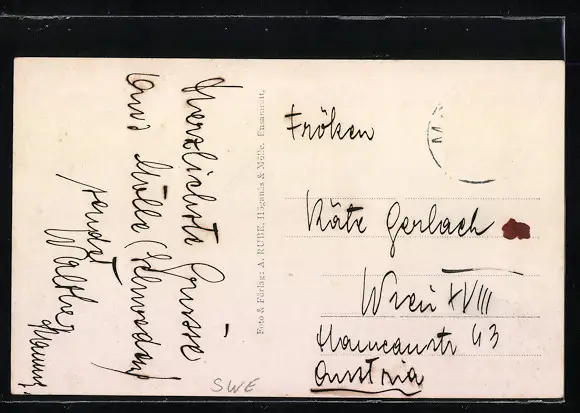 Herzlichste Grüsse
aus Mölle (Schweden)
sendet
Walther
Foto & Förlag: A. RUBE, Höganäs & Mölle. Ensamrätt.
Fröken
Käte Gerlach
Wien XVIII
43
Austria
SWE